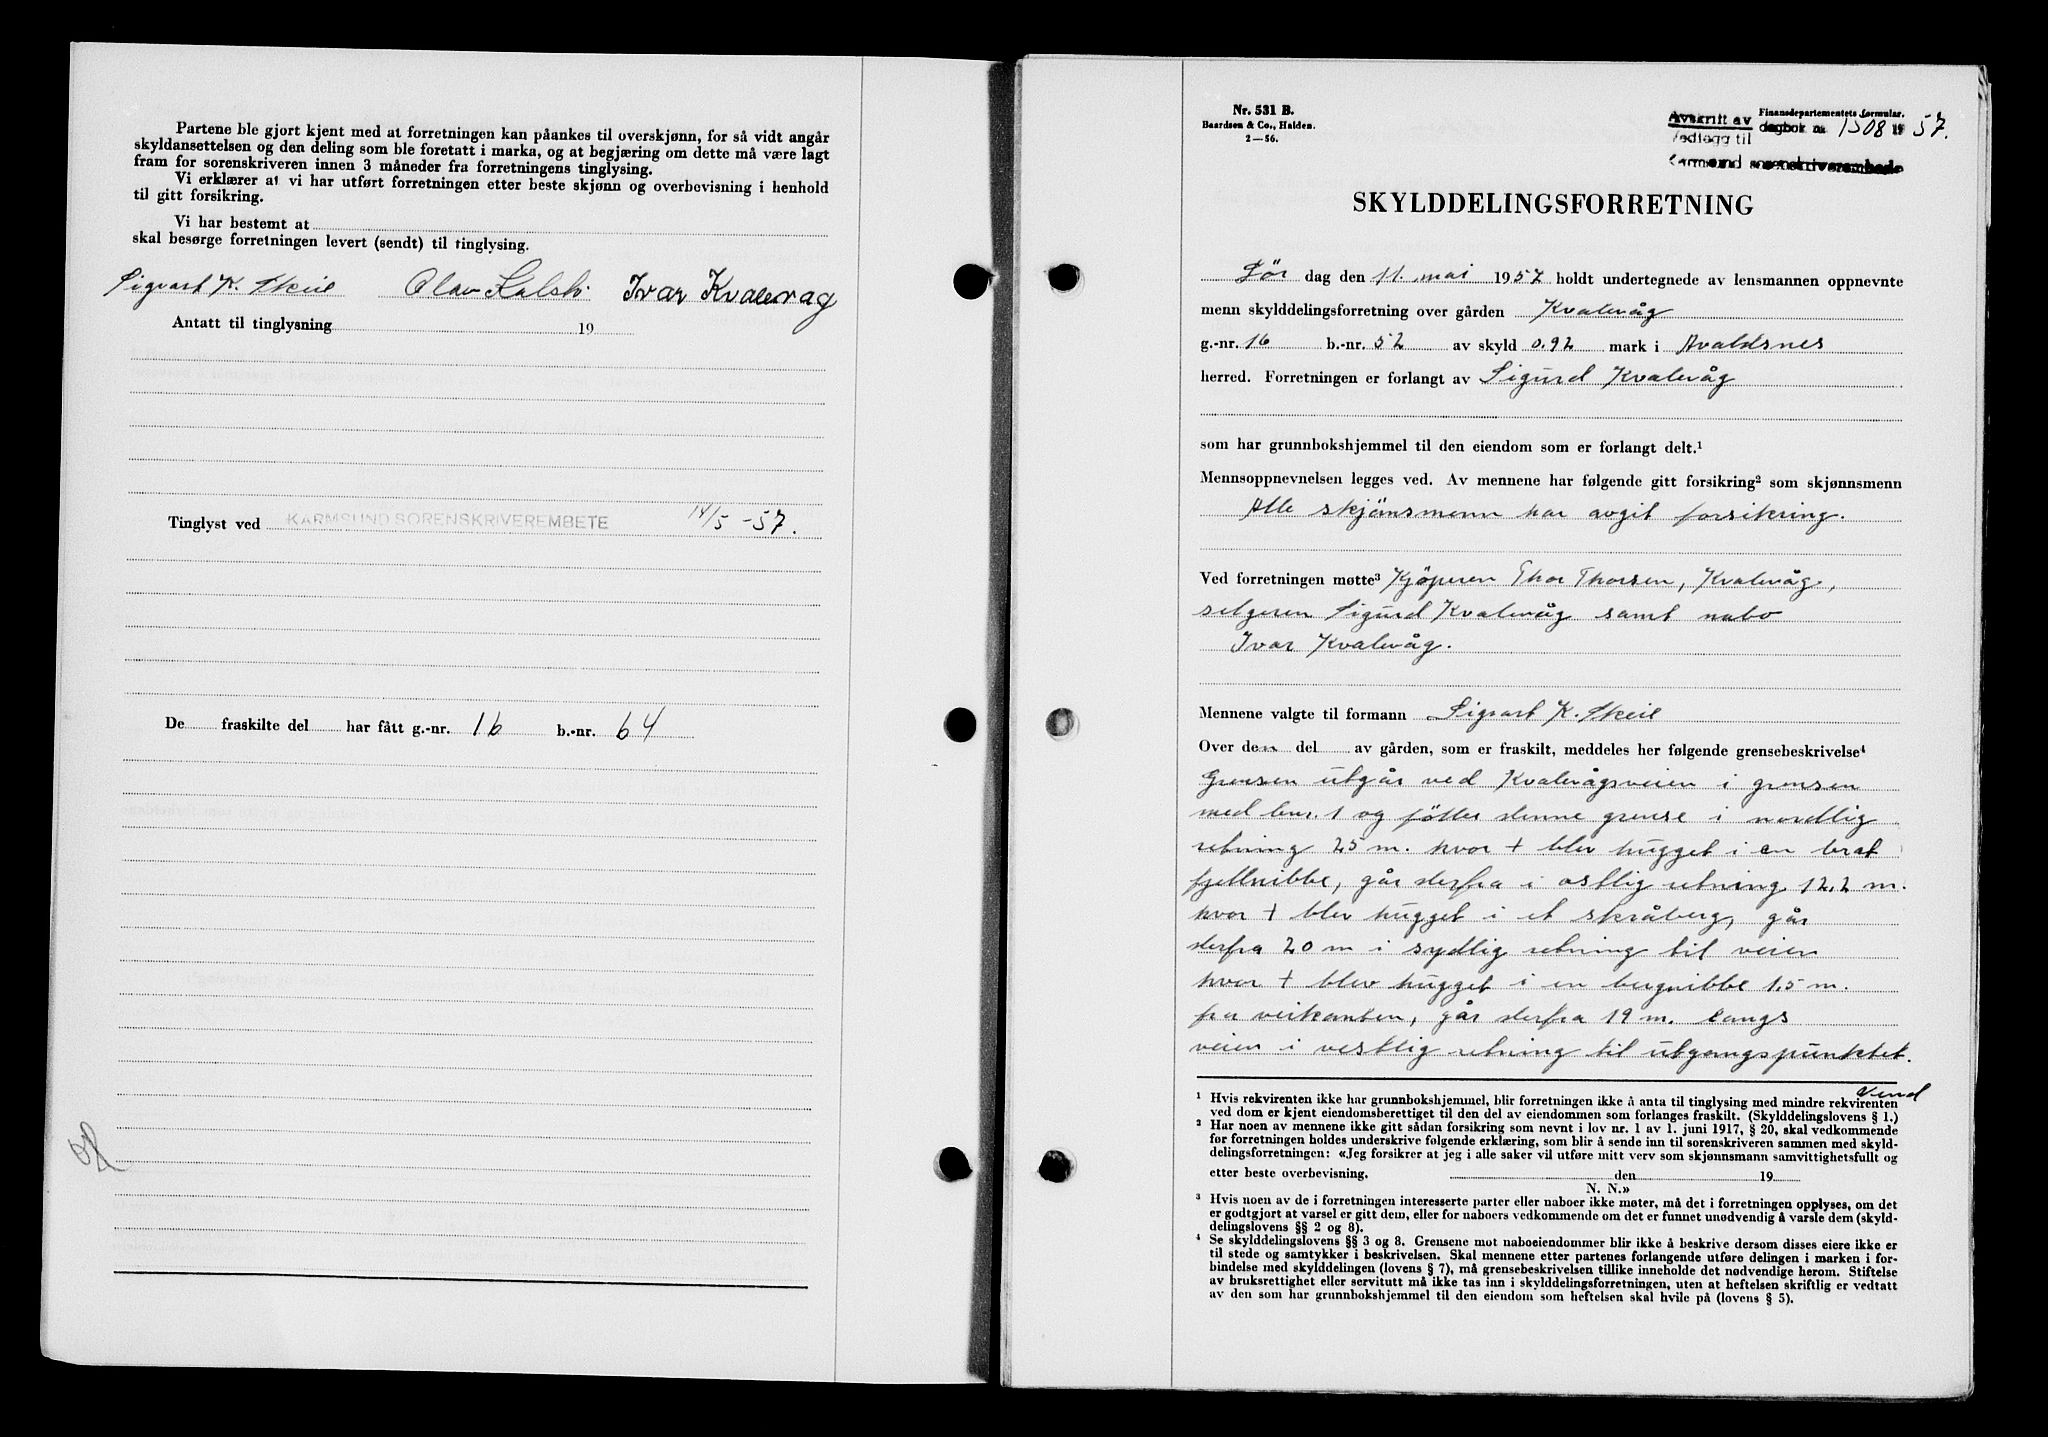 Partene ble gjort kjent med at forretningen kan påankes til overskjønn, for så vidt angår
skyldansettelsen og den deling som ble foretatt i marka, og at begjæring om dette må være lagt
fram for sorenskriveren innen 3 måneder fra forretningens tinglysing.
Vi erklærer at vi har utført forretningen etter beste skjønn og overbevisning i henhold
til gitt forsikring.
Vi har bestemt at
skal besørge forretningen levert (sendt) til tinglysing.
Sigvart K. Skeie Olav Ivar Kvalevag
Antatt til tinglysning 19
Tinglyst ved KARMSUND SORENSKRIVEREMBETE 14/5 -57.
De fraskilte del har fått g.-nr. 16 b.-nr. 64
Nr. 531 B.
Baardsen & Co., Halden.
2—56.
Finansdepartementets formular.
Avskrift av dagbok nr. 1508 19 57.
Vedlegg til
Karmsund sorenskriverembede
SKYLDDELINGSFORRETNING
Lør dag den 11. mai 1957 holdt undertegnede av lensmannen oppnevnte
menn skylddelingsforretning over gården Kvalevåg
g.-nr. 16 b.-nr. 52 av skyld 0.92 mark i Avaldsnes
herred. Forretningen er forlangt av Sigurd Kvalevåg
som har grunnbokshjemmel til den eiendom som er forlangt delt.¹
Mennsoppnevnelsen legges ved. Av mennene har følgende gitt forsikring² som skjønnsmenn
Alle skjönsmenn har avgit forsikring.
Ved forretningen møtte³ Kjöperen Thor Thorsen, Kvalevåg,
selgeren Sigurd Kvalevåg samt nabo
Ivar Kvalevåg.
Mennene valgte til formann Sigvart K. Skeie
Over den del av gården, som er fraskilt, meddeles her følgende grensebeskrivelse⁴
Grensen utgår ved Kvalevågsveien i grensen
med bnr. 1 og fölter denne grense i nordlig
retning 25 m. hvor + blev hugget i en brat
fjellnibbe, går derfra i ostlig retning 12,2 m.
hvor + blev hugget i et skråberg, går
derfra 20 m i sydlig retning til veien
hvor + blev hugget i en bergnibbe 1,5 m.
fra veikanten, går derfra 19 m. langs
veien i vestlig retning til utgangspunktet.
Vend
¹ Hvis rekvirenten ikke har grunnbokshjemmel, blir forretningen ikke å anta til tinglysing med mindre rekvirenten
ved dom er kjent eiendomsberettiget til den del av eiendommen som forlanges fraskilt. (Skylddelingslovens § 1.)
² Har noen av mennene ikke gitt sådan forsikring som nevnt i lov nr. 1 av 1. juni 1917, § 20, skal vedkommende
før forretningen holdes underskrive følgende erklæring, som blir å sende inn til sorenskriveren sammen med skyld-
delingsforretningen: «Jeg forsikrer at jeg i alle saker vil utføre mitt verv som skjønnsmann samvittighetsfullt og
etter beste overbevisning. den 19
N. N.»
³ Hvis noen av de i forretningen interesserte parter eller naboer ikke møter, må det i forretningen opplyses, om det
er godtgjort at varsel er gitt dem, eller for naboers vedkommende om det er funnet unødvendig å varsle dem (skyld-
delingslovens §§ 2 og 8).
⁴ Se skylddelingslovens §§ 3 og 8. Grensene mot naboeiendommer blir ikke å beskrive dersom disses eiere ikke er
til stede og samtykker i beskrivelsen. Skal mennene etter partenes forlangende utføre delingen i marken i for-
bindelse med skylddelingen (lovens § 7), må grensebeskrivelsen tillike inneholde det nødvendige herom. Stiftelse
av bruksrettighet eller servitutt må ikke tas inn i skylddelingsforretningen, uten at heftelsen skriftlig er vedtatt
av den som har grunnbokshjemmel til den eiendom som heftelsen skal hvile på (lovens § 5).